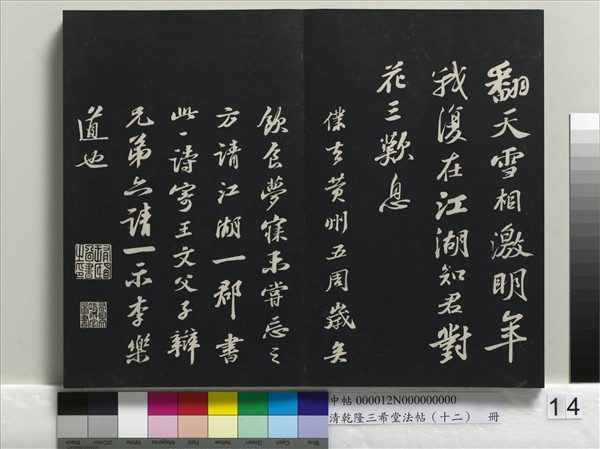 翻天雪相激明年
我復在江湖知君對
花三歎息
僕去黃州五周歲矣
飲食夢寐未嘗忘之
方請江湖一郡書
此一詩寄王文父子辯
兄弟亦請一示李樂
道也
中帖 000012N000000000
清乾隆三希堂法帖（十二） 冊
14
Black
3/Color
White
Magenta
Red
Yellow
Green
Cyan
Blue